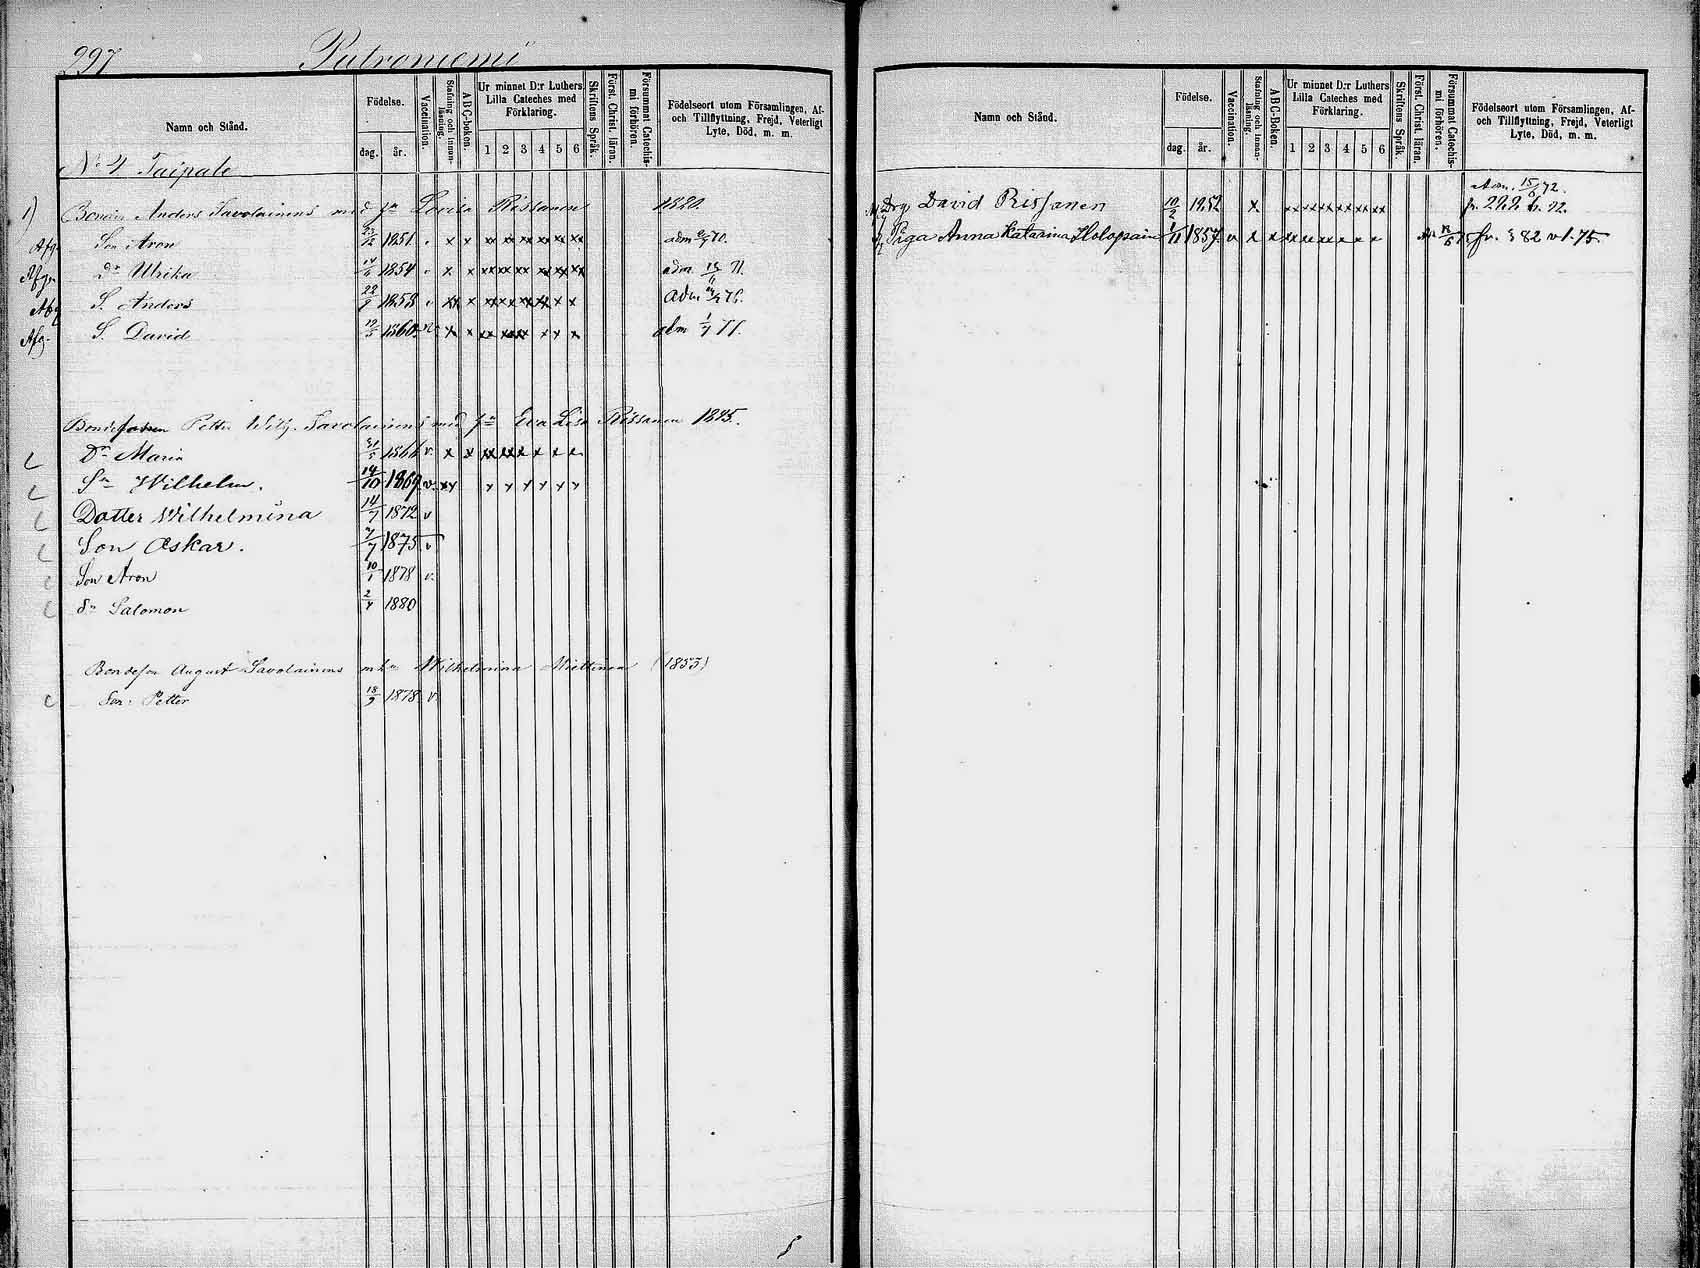 297 Putroniemi
Namn och Stånd.
Födelse.
dag. år.
Vaccination.
Stafning och innan-läsning.
ABC-boken.
Ur minnet D:r Luthers Lilla Cateches med Förklaring.
1 2 3 4 5 6
Skriftens Språk.
Först. Christ. läran.
Försummat Catechis-mi förhören.
Födelseort utom Församlingen, Af- och Tillflyttning, Frejd, Veterligt Lyte, Död, m. m.
No 4 Taipale
1) Bonden Anders Savolainens med hu Lovisa Rissanen 1820.
Afg. Son Aron 1851 x x xx xx xx xx xx xx adm 70.
Afg. Dr Ulrika 1854 x x xx xx xx xx xx xx adm. 71.
Afg S. Anders 22/9 1858 xx x xx xx xx xx x x adm. 76.
Afg. S. David 1860 v x x xx xx xx x x x adm 1/7 77.
Bondesonen Petter Wilh. Savolainens med hu Eva Lisa Rissanen 1845.
Dr Maria 31/5 1866 v. x x xx xx x x x x
Sn Wilhelm. 14/10 1869 v. xx x x x x x x
Dotter Wilhelmina 14/7 1872 v
Son Oskar. 7/7 1875 v
Son Aron 10/1 1878 v.
Sn Salomon 2/4 1880
Bondeson August Savolainens m hu Wilhelmina Miettinen (1853)
Son: Petter 18/9 1878 v.
Namn och Stånd.
Födelse.
dag. år.
Vaccination.
Stafning och innan-läsning.
ABC-Boken.
Ur minnet D:r Luthers Lilla Cateches med Förklaring.
1 2 3 4 5 6
Skriftens Språk.
Först. Christ. läran.
Försummat Catechis-mi förhören.
Födelseort utom Församlingen, Af- och Tillflyttning, Frejd, Veterligt Lyte, Död, m. m.
Adm. 15/6 72.
Drg David Rissanen 10/2 1852 x xx xx xx xx xx
Piga Anna Katarina Holopain 1/11 1857 v x x xx xx xx x x x fr. 382 v 1. 75.